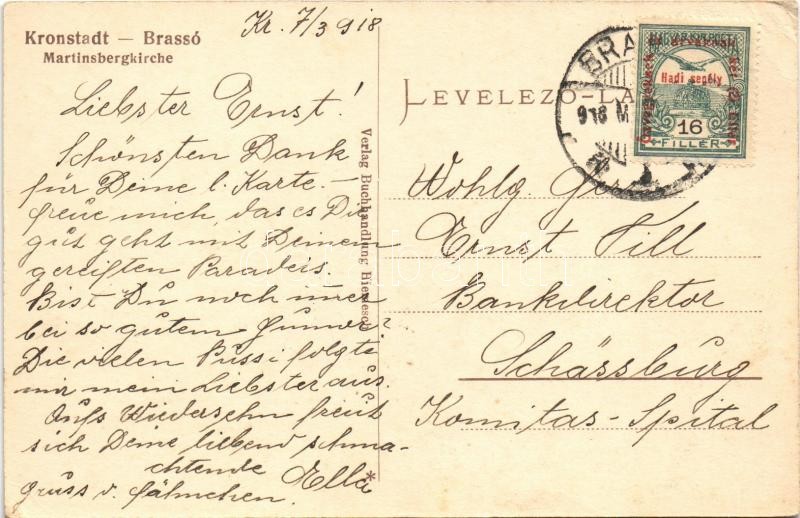 Kronstadt — Brassó
Martinsbergkirche
Kr. 7/3 918
Liebster Ernst!
Schönsten Dank
für Deine l. Karte-
freue mich, das es Dir
gut geht mit Deinem
gereiften Paradeis.
Bist Du noch imer
bei so gutem Humor?
Die vielen Pussi folgte
mir mein Liebster aus.
Aufs Wiedersehn freut
sich Deine liebend schma-
chtende Ella
Gruss v.
Verlag Buchhandlung
LEVELEZŐ-LA
BRA
918 M
Hadi segély
16
FILLÉR
Wohlg. Herr
Ernst Fill
Bankdirektor
Schässburg
Komitas-Spital